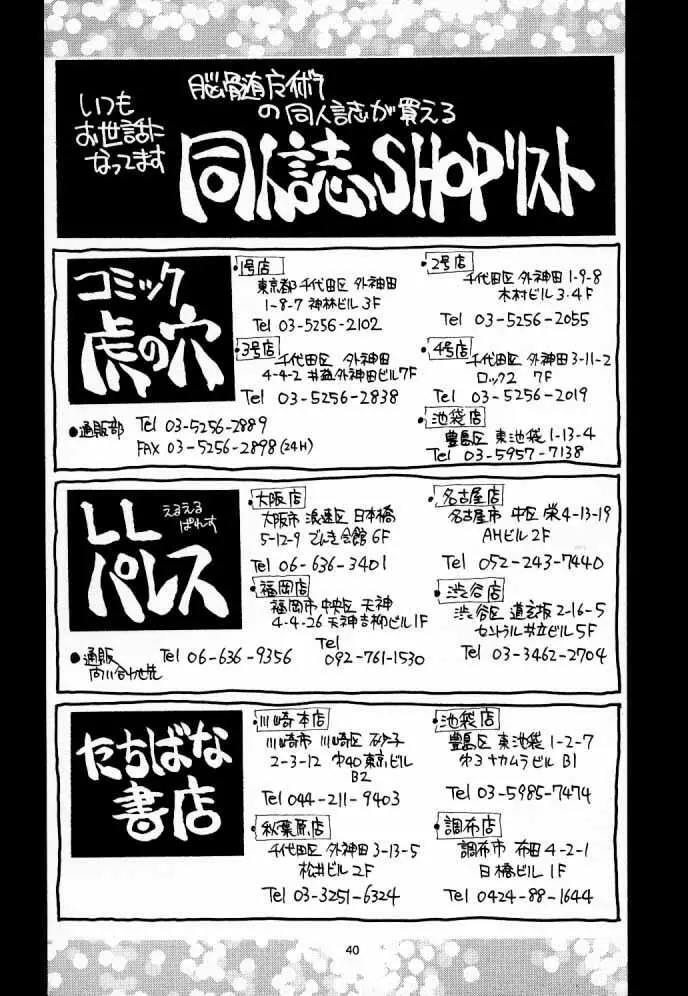 いつも
お世話に
なってます
脳髄直圧術
の同人誌が買える
同人誌SHOPリスト
コミック
虎の穴
・1号店
東京都千代田区外神田
1-8-7 神林ビル3F
Tel 03-5256-2102
・2号店
千代田区外神田1-9-8
木村ビル3・4F
Tel 03-5256-2055
・3号店
千代田区 外神田
4-4-2 外神田ビル7F
Tel 03-5256-2838
・4号店
千代田区 外神田3-11-2
ロック2 7F
Tel 03-5256-2019
●通販部 Tel 03-5256-2889
FAX 03-5256-2898(24H)
・池袋店
豊島区 東池袋1-13-4
Tel 03-5957-7138
LL
パレス
えるえる
ぱれす
・大阪店
大阪市 浪速区 日本橋
5-12-9 でんき会館6F
Tel 06-636-3401
・名古屋店
名古屋市 中区 栄4-13-19
AHビル2F
Tel 052-243-7440
・福岡店
福岡市中央区天神
4-4-26 天神吉柳ビル1F
Tel
092-761-1530
・渋谷店
渋谷区 道玄坂2-16-5
セントラル共立ビル5F
Tel 03-3462-2704
●通販 Tel 06-636-9356
問い合わせ先
たちばな
書店
・川崎本店
川崎市 川崎区 砂子
2-3-12 オ40東京ビル
B2
Tel 044-211-9403
・池袋店
豊島区 東池袋1-2-7
オ3ナカムラビル B1
Tel 03-5985-7474
・秋葉原店
千代田区 外神田3-13-5
松井ビル2F
Tel 03-3251-6324
・調布店
調布市 布田4-2-1
日橋ビル1F
Tel 0424-88-1644
40